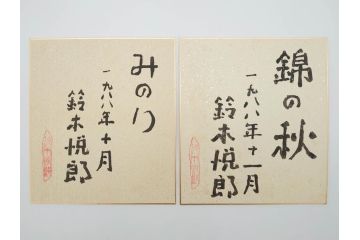 錦の秋
一九八八年十一月
鈴木悦郎
みのり
一九八八年十月
鈴木悦郎